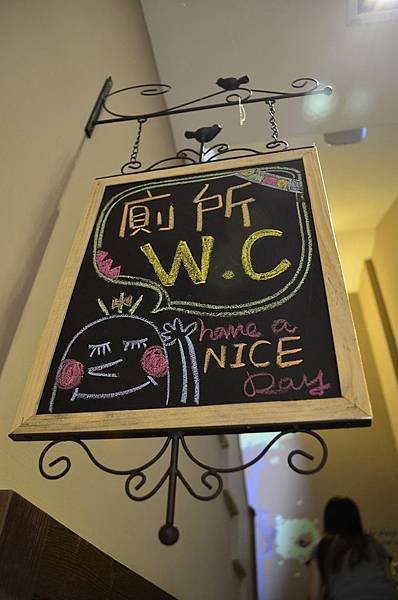 廁所
W.C
have a
NICE
Day